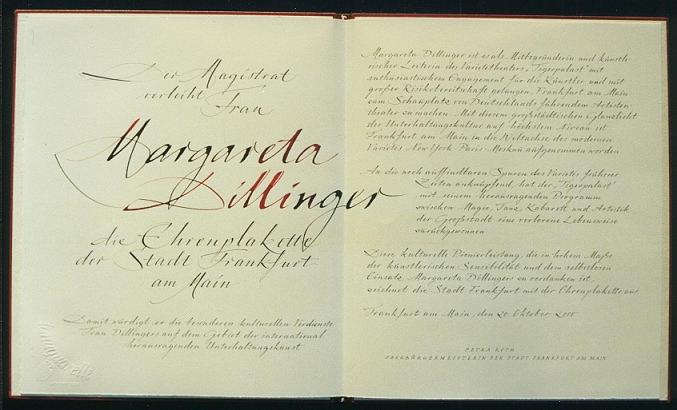 Der Magistrat
verleiht Frau
Margareta
Dillinger
die Ehrenplakette
der Stadt Frankfurt
am Main
Damit würdigt er die besonderen kulturellen Verdienste
Frau Dillingers auf dem Gebiet der international
herausragenden Unterhaltungskunst
Margareta Dillinger ist es als Mitbegründerin und künstle-
rischer Leiterin des Varietétheaters „Tigerpalast" mit
enthusiastischem Engagement für die Künstler und mit
großer Risikobereitschaft gelungen, Frankfurt am Main
zum Schauplatz von Deutschlands führendem Artisten-
theater zu machen. Mit diesem großstädtischen Glanzlicht
der Unterhaltungskultur auf höchstem Niveau ist
Frankfurt am Main in die Weltachse des modernen
Varietés New York Paris Moskau aufgenommen worden
An die noch auffindbaren Spuren des Varietés früherer
Zeiten anknüpfend, hat der „Tigerpalast"
mit seinem herausragenden Programm
zwischen Magie, Tanz, Kabarett und Artistik
der Großstadt eine verlorene Lebensweise
zurückgewonnen
Diese kulturelle Pionierleistung, die in hohem Maße
der künstlerischen Sensibilität und dem selbstlosen
Einsatz Margareta Dillingers zu verdanken ist,
zeichnet die Stadt Frankfurt mit der Ehrenplakette aus.
Frankfurt am Main, den 20. Oktober
PETRA ROTH
OBERBÜRGERMEISTERIN DER STADT FRANKFURT AM MAIN